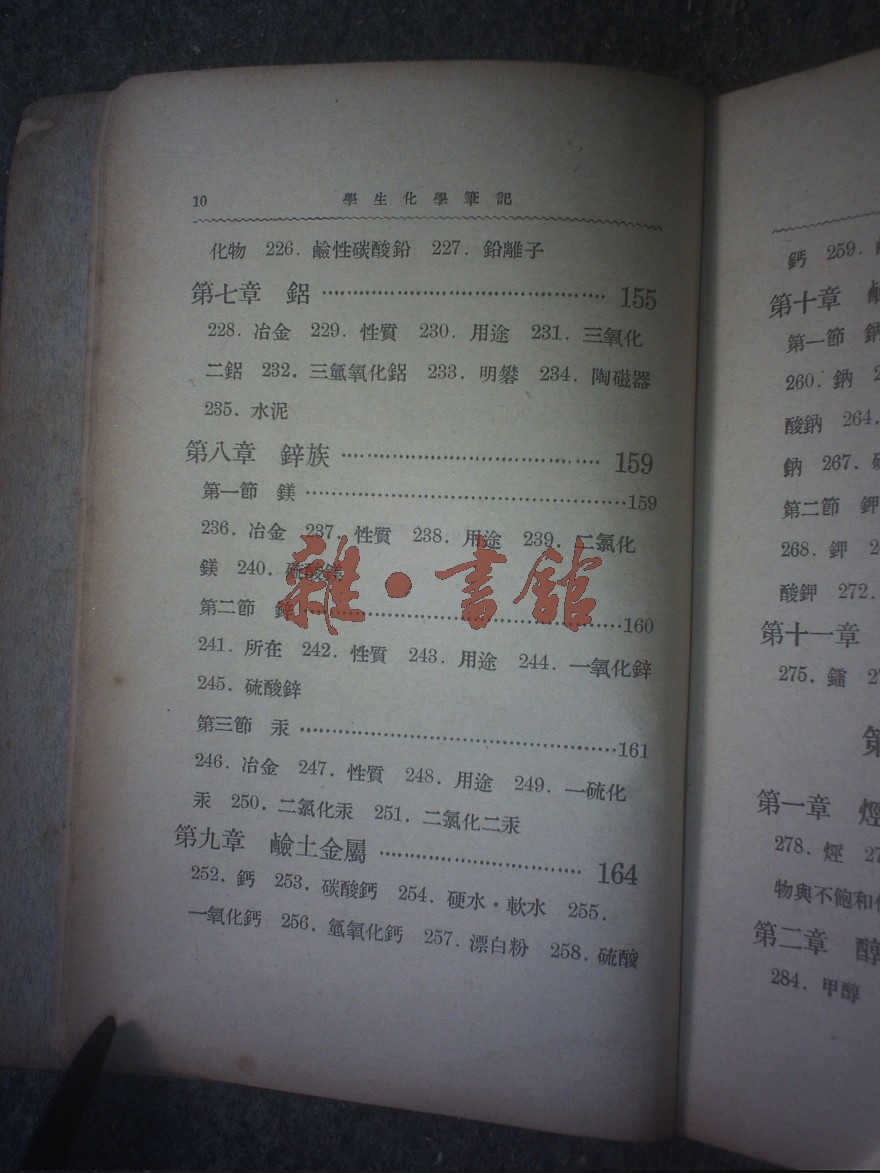 10 學生化學筆記
化物 226. 鹼性碳酸鉛 227. 鉛離子
第七章 鋁 …… 155
228. 冶金 229. 性質 230. 用途 231. 三氧化
二鋁 232. 三氫氧化鋁 233. 明礬 234. 陶磁器
235. 水泥
第八章 鋅族 …… 159
第一節 鎂 …… 159
236. 冶金 237. 性質 238. 用途 239. 二氯化
鎂 240. 硫酸鎂
第二節 鋅 …… 160
241. 所在 242. 性質 243. 用途 244. 一氧化鋅
245. 硫酸鋅
第三節 汞 …… 161
246. 冶金 247. 性質 248. 用途 249. 一硫化
汞 250. 二氯化汞 251. 二氯化二汞
第九章 鹼土金屬 …… 164
252. 鈣 253. 碳酸鈣 254. 硬水·軟水 255.
一氧化鈣 256. 氫氧化鈣 257. 漂白粉 258. 硫酸
雜·書館
鈣 259.
第十章
第一節 鈉
260. 鈉
酸鈉 264.
鈉 267.
第二節 鉀
268. 鉀
酸鉀 272.
第十一章
275. 鐳
第
第一章 烴
278. 烴
物與不飽和
第二章 醇
284. 甲醇